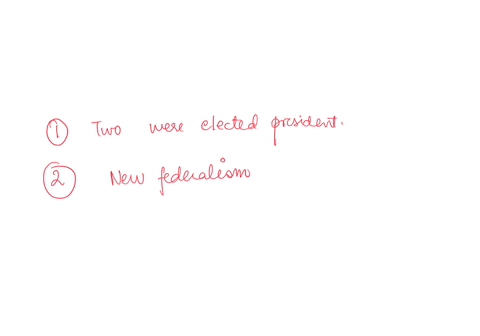 ① Two were elected president.
② New federalism